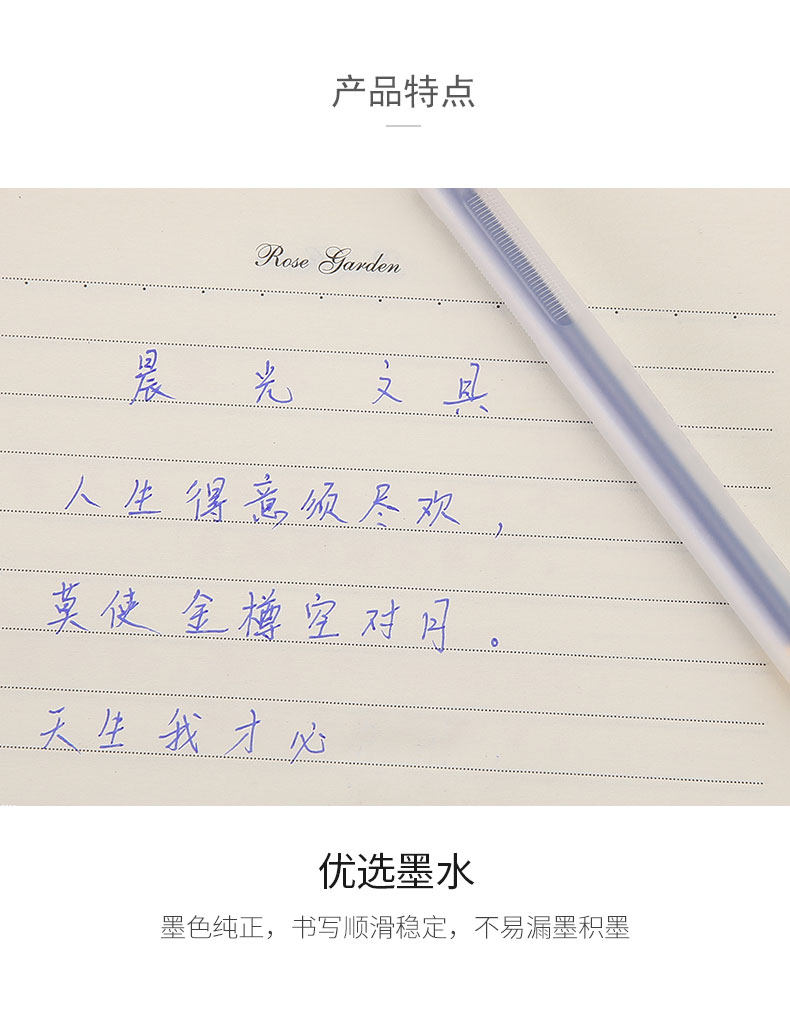 产品特点
Rose Garden
晨光文具
人生得意须尽欢，
莫使金樽空对月。
天生我才必
优选墨水
墨色纯正，书写顺滑稳定，不易漏墨积墨